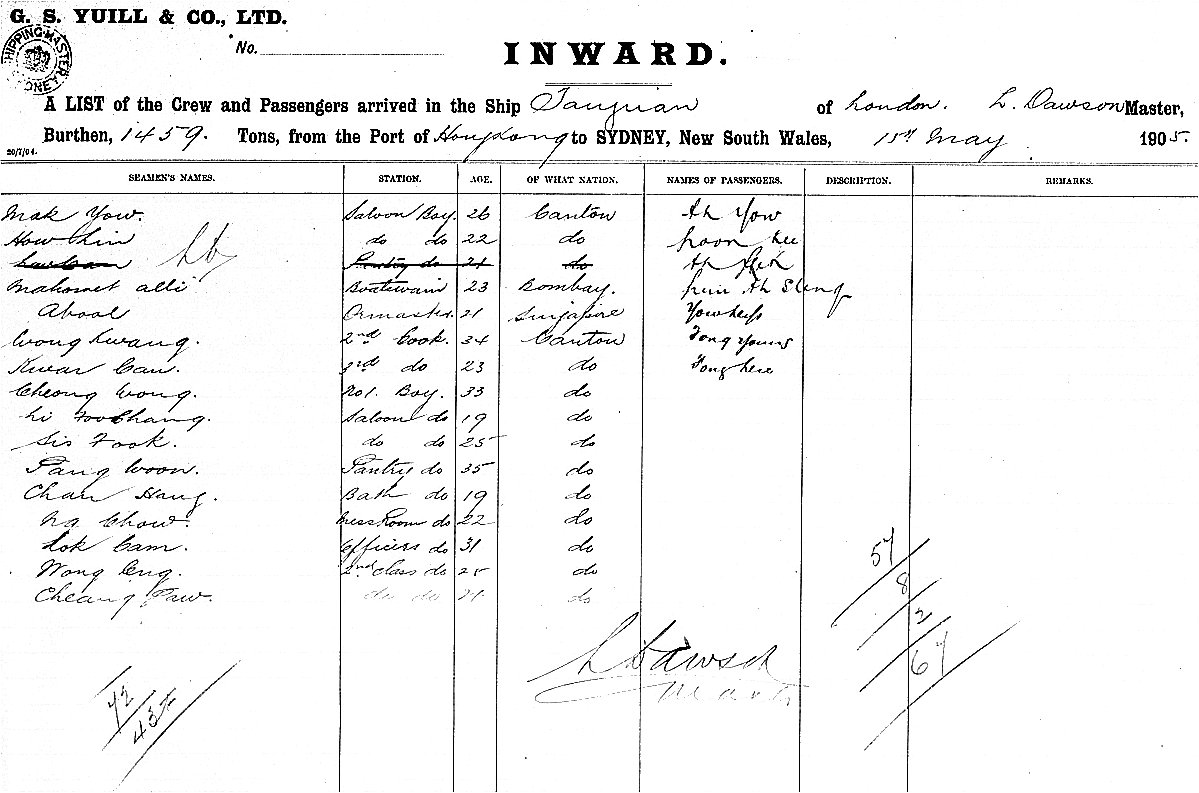 G. S. YUILL & CO., LTD.
SHIPPING MASTER SYDNEY
No.
INWARD.
A LIST of the Crew and Passengers arrived in the Ship Taiyuan of London. L. Dawson Master,
Burthen, 1459. Tons, from the Port of Hong Kong to SYDNEY, New South Wales, 15th May 1905.
20/7/04.
SEAMEN'S NAMES. STATION. AGE. OF WHAT NATION. NAMES OF PASSENGERS. DESCRIPTION. REMARKS.
Mak Yow. Saloon Boy. 26 Canton Ah Yow
How Lin do do 22 do hoon Kee
Pantry do 21 do Ah
Mahomet alli Boatswain 23 Bombay. Ah
Abool 21 Singapore
Wong Kwang. 2nd Cook. 34 Canton Tong Young
Kwar Can. 3rd do 23 do Tong hee
Cheong Wong. No1. Boy. 33 do
Li Foo Chang. Saloon do 19 do
Sis Fook. do do 25 do
Pang Woon. Pantry do 35 do
Chan Hang. Bath do 19 do
Ng Chow. Mess Room do 22 do
Lok Cam. Officers do 31 do
Wong Eng. 2nd class do 25 do
Cheang Paw. do do 21 do
57
8
2
67
L Dawson
Master
42